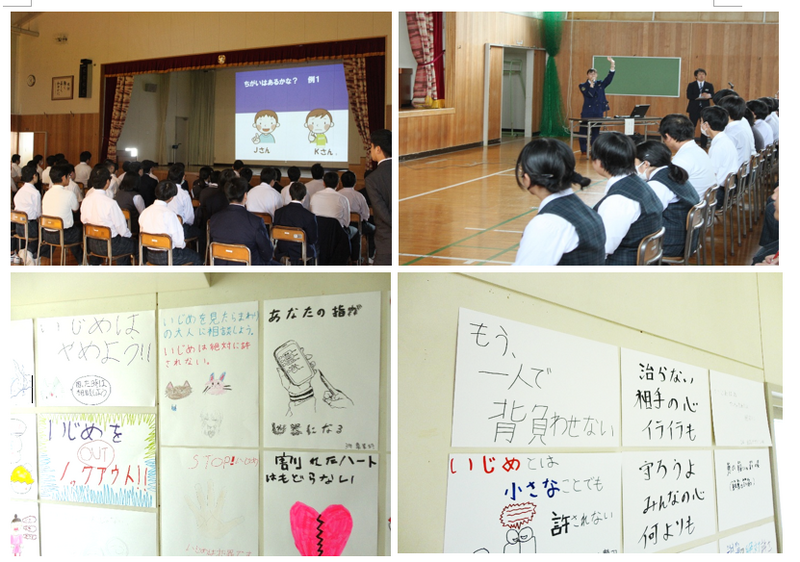 ちがいはあるかな？　例1
Jさん
Kさん
いじめは
やめよう!!
いじめを見たらまわり
の大人に相談しよう。
いじめは絶対に許
されない。
あなたの指が
になる
いじめを
OUT
ノックアウト!!
STOP!いじめ
割れたハート
はもどらない
もう、
一人で
背負わせない
治らない
相手の心
イライラも
いじめとは
小さなことでも
許されない
守ろうよ
みんなの心
何よりも